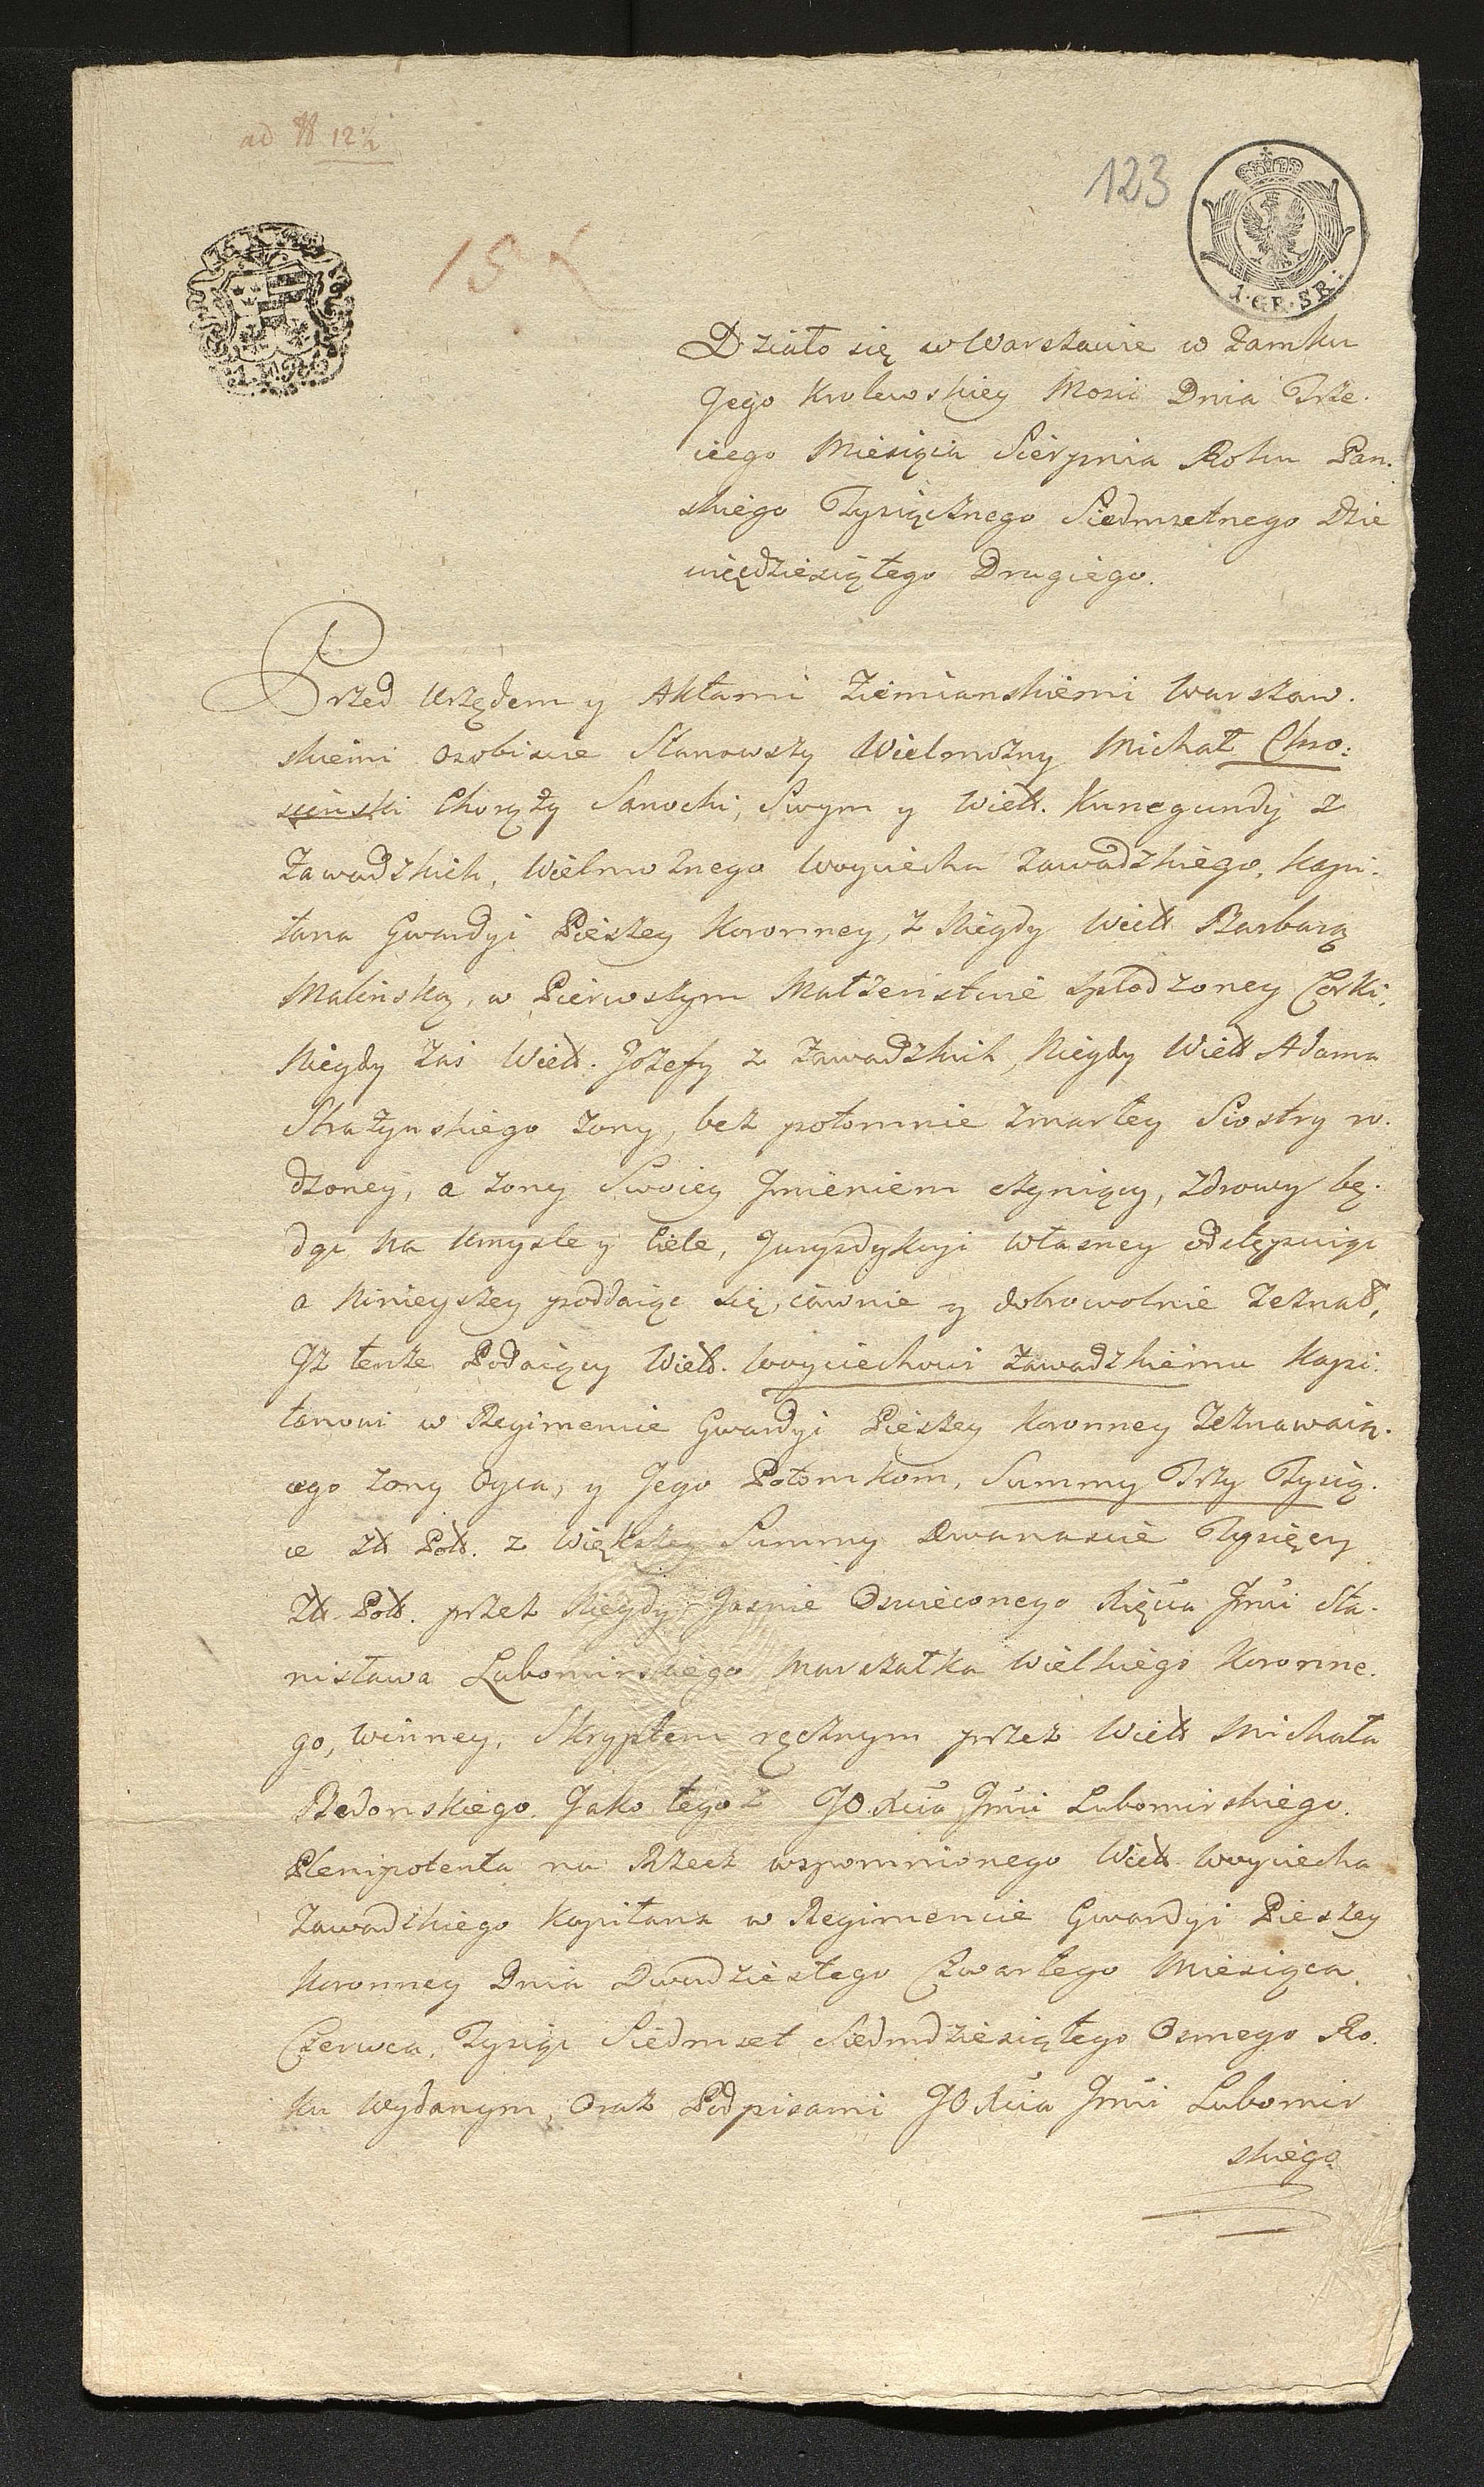 ad # 12½
123
15
1. GR. SR:
Działo się w Warszawie w Zamku
Jego Krolewskiey Mości Dnia Trze-
ciego Miesiąca Sierpnia Roku Pan-
skiego Tysiącznego Siedmsetnego Dzie
więćdziesiątego Drugiego.
Przed Urzędem y Aktami Ziemianskiemi Warszaw-
skiemi Osobiscie Stanowszy Wielmożny Michał Chro:
scinski Chorąży Sanocki, Swym y Wielł. Kunegundy z
Zawadzkich, Wielmożnego Woyciecha Zawadzkiego, Kapi-
tana Gwardyi Pieszey Koronney, z Niegdy Wielł Barbarą
Malińską, w Pierwszym Małżeństwie Spłodzoney Corki,
Niegdy zaś Wielł. Jozefy z Zawadzkich, Niegdy Wielł Adama
Strażynskiego żony, bez potomnie zmarłey Siostry ro-
dzoney, a żony Swoiey Imieniem czyniący, Zdrowy bę-
dąc na Umysle y Ciele, Juryzdykcyi własney odstępuiąc
a Ninieyszey poddaiąc się, iawnie y dobrowolnie Zeznał,
Iż tenże Podaiący Wielł. Woyciechowi Zawadzkiemu Kapi-
tanowi w Regimencie Gwardyi Pieszey Koronney Zeznawaią-
cego żony Oyca, y Jego Potomkom, Summy Trzy Tysią-
ce Zł Polł. z Większey Summy Dwanascie Tysięcy
Zł. Polł. przez Niegdy Jasnie Oswieconego Xięcia Jmci Sta-
nisława Lubomirskiego Marszałka Wielkiego Koronne-
go, Winney, Skryptem ręcznym przez Wielł Michała
Redonskiego. Jako tegoż JO. Xcia Jmci Lubomirskiego.
Plenipotenta na Rzecz wspomnionego Wielł. Woyciecha
Zawadzkiego Kapitana w Regimencie Gwardyi Pieszey
Koronney Dnia Dwudziestego Czwartego Miesiąca
Czerwca, Tysiąc Siedmset Siedmdziesiątego Osmego Ro-
ku Wydanym, Oraz Podpisami JO Xcia Jmci Lubomir
skiego